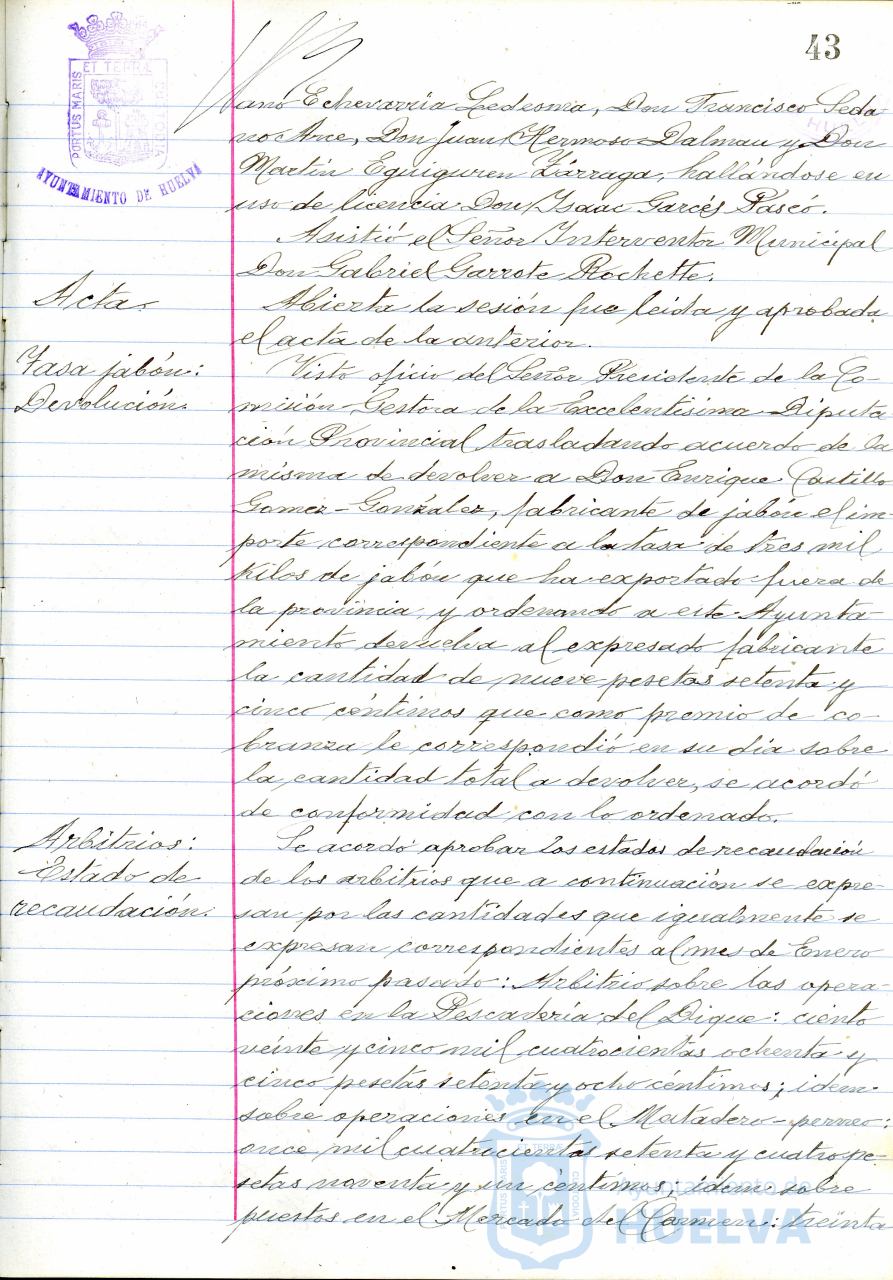 43
PORTUS MARIS
ET TERRÆ
CUSTODIA
AYUNTAMIENTO DE HUELVA
ano Echevarria Ledesma, Don Francisco Seda-
no Arce, Don Juan Hermoso Dalmau y Don
Martín Eguiguren Zárraga, hallándose en
uso de licencia Don Isaac Garcés Pascó.
Asistió el Señor Interventor Municipal
Don Gabriel Garrote Rochette.
Acta.
Abierta la sesión fue leida y aprobada
el acta de la anterior.
Tasa jabón:
Devolución.
Visto oficio del Señor Presidente de la Co-
misión Gestora de la Excelentisima Diputa
ción Provincial trasladando acuerdo de la
misma de devolver a Don Enrique Castillo
Gomez-González, fabricante de jabón el im-
porte correspondiente a la tasa de tres mil
kilos de jabón que ha exportado fuera de
la provincia, y ordenando a este Ayunta-
miento devuelva al expresado fabricante
la cantidad de nueve pesetas setenta y
cinco céntimos que como premio de co-
branza le correspondió en su dia sobre
la cantidad total a devolver, se acordó
de conformidad con lo ordenado.
Arbitrios:
Estado de
recaudación.
Se acordó aprobar los estados de recaudación
de los arbitrios que a continuación se expre-
san por las cantidades que igualmente se
expresan correspondientes al mes de Enero
próximo pasado: Arbitrio sobre las opera-
ciones en la Pescadería del Dique: ciento
veinte y cinco mil cuatrocientas ochenta y
cinco pesetas setenta y ocho céntimos; idem
sobre operaciones en el Matadero-perneo:
once mil cuatrocientas setenta y cuatro pe-
setas noventa y un céntimos; idem sobre
puestos en el Mercado del Carmen: treinta
Ayuntamiento de
HUELVA